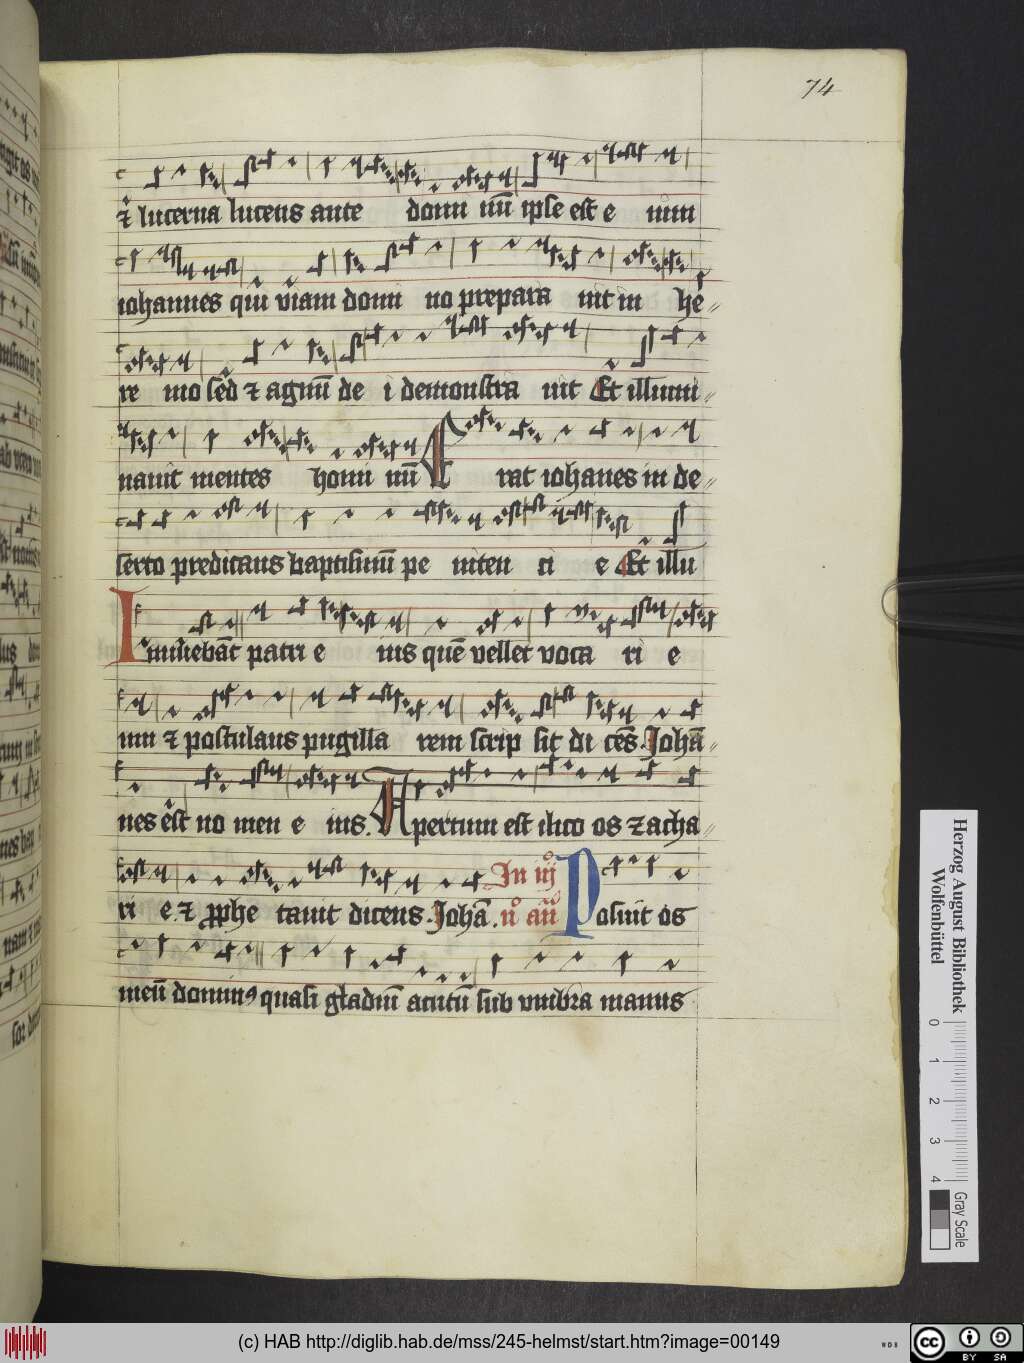 74
⁊ lucerna lucens ante domi nū ipse est e nim
iohannes qui viam domi no prepara uit in he
re mo sed ⁊ agnū de i demonstra uit Et illumi
nauit mentes homi nū Erat iohanes in de
serto predicans baptismū pe niten ci e Et illu
Innuebāt patri e ius quē vellet voca ri e
um ⁊ postulans pugilla rem scrip sit di cēs Johā
nes est no men e ius. Apertum est ilico os zacha
ri e ⁊ pphe tauit dicens Johā. In iij
n̄ añ Posuit os
meū dominꝰ quasi gladiū acutū sub vmbra manus
Herzog August Bibliothek
Wolfenbüttel
0 1 2 3 4
Gray Scale
(c) HAB http://diglib.hab.de/mss/245-helmst/start.htm?image=00149
WDB
cc BY SA